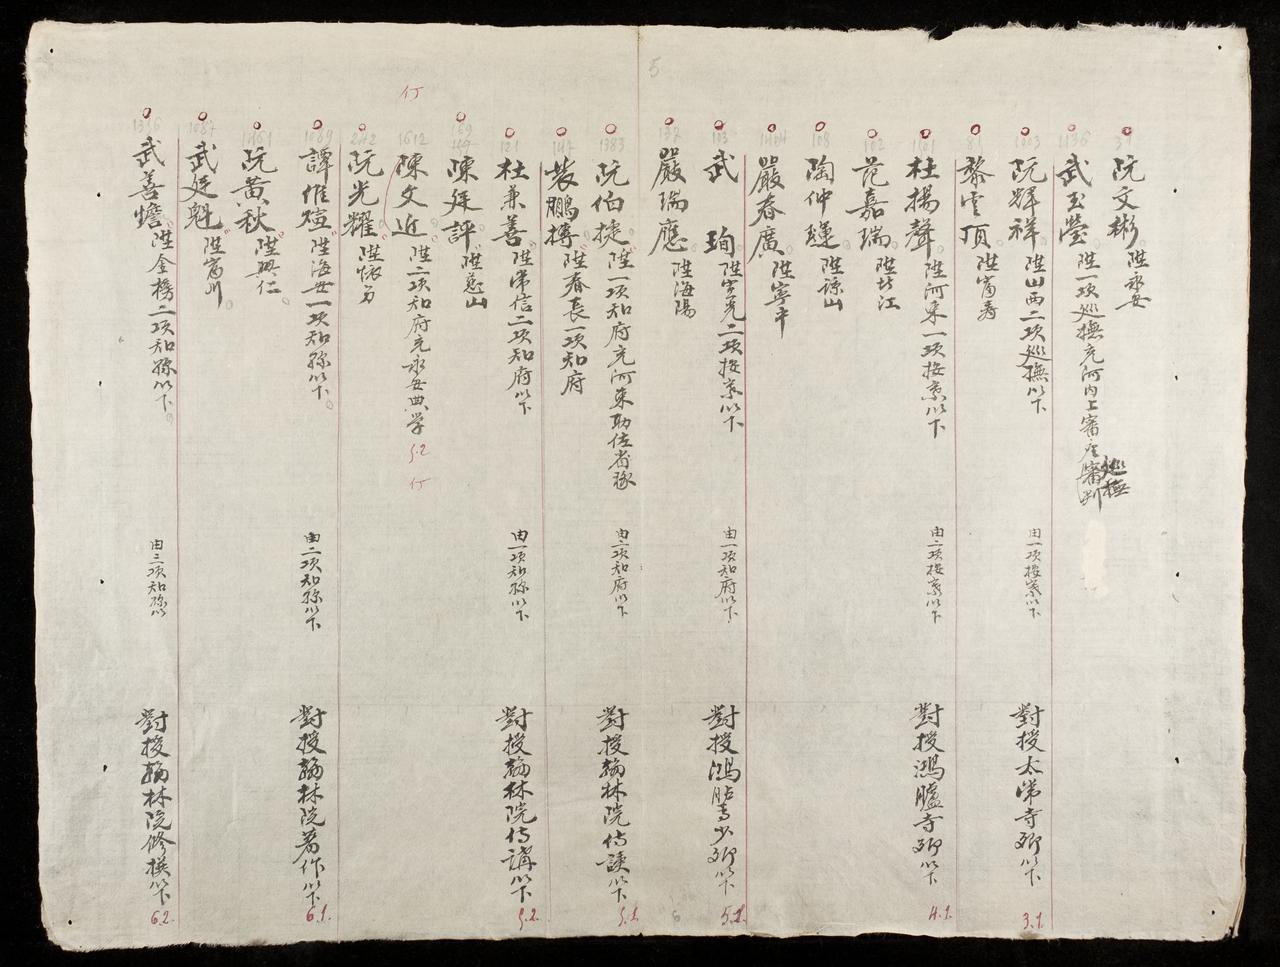 5
阮文彬 陞永安
武玉瑩 陞一項巡撫充河內上審座審判
巡撫
阮輝祥 陞山西二項巡撫以下 由一項按察以下 對授太常寺卿以下 3.1.
黎文頂 陞富壽
杜揚聲 陞河東一項按察以下 由二項按察以下 對授鴻臚寺卿以下 4.1.
范嘉瑞 陞北江
陶仲 陞諒山
嚴春廣 陞寧平
武珣 陞宣光二項按察以下 由一項知府以下 對授鴻臚少卿以下
嚴瑞應 陞海陽
阮伯捷 陞一項知府充河東助佐省 由二項知府以下 對授翰林院侍讀以下 5.1.
裴鵬摶 陞春長一項知府
杜兼善 陞常信二項知府以下 由一項知縣以下 對授翰林院侍講以下 5.2.
陳廷評 陞慈山
陳文近 陞二項知府充永安典学 5.2
阮光耀 陞
譚惟 陞海安一項知縣以下 由二項知縣以下 對授翰林院著作以下 6.1.
阮黃秋 陞興仁
武廷魁 陞富川
武善 陞金榜二項知縣以下 由三項知縣以 對授翰林院修撰以下 6.2.